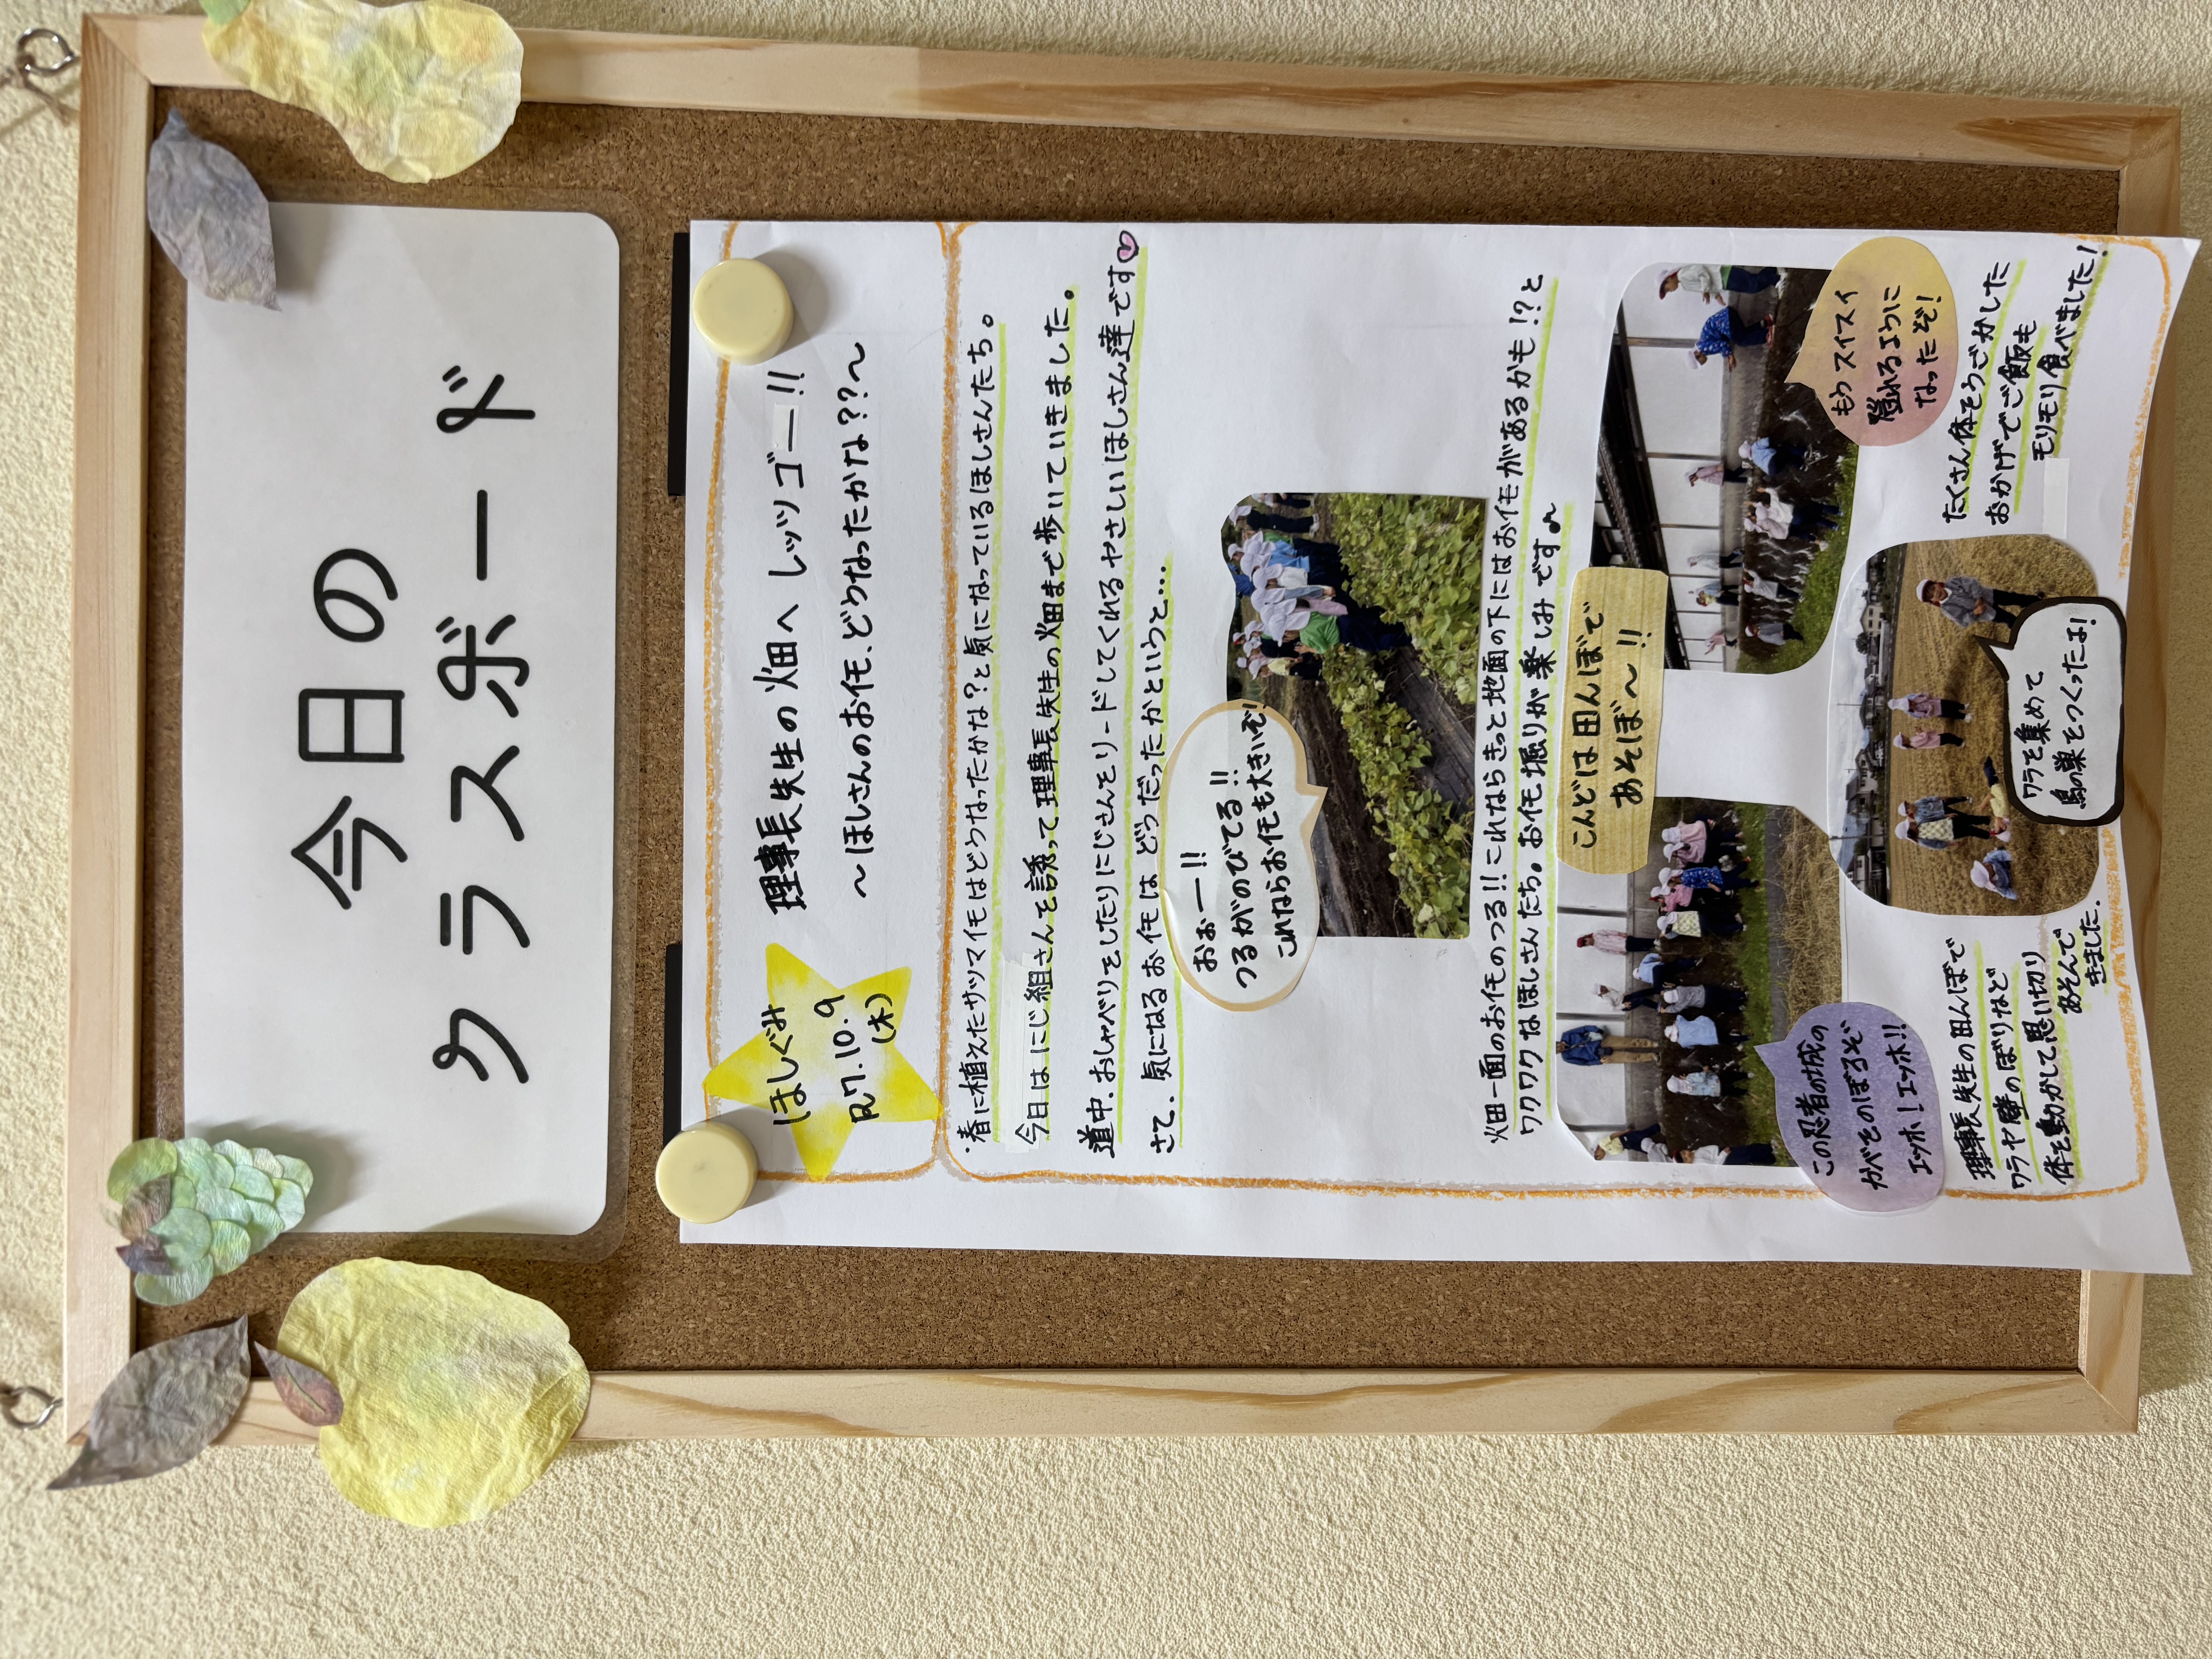 今日の
クラスボード
ほしぐみ
R7.10.9
(木)
理事長先生の畑へ レッツゴー!!
〜ほしさんのお仔、どうなったかな??〜
・春に植えたサツマイモはどうなったかな?と気になっているほしさんたち。
今日はにじ組さんを誘って理事長先生の畑まで歩いていきました。
道中、おしゃべりをしたりにじさんをリードしてくれるやさしいほしさん達です♡
さて、気になるお仔は どうだったかというと…
おぉー!!
つるがのびてる!!
これならお仔も大きいぞ!
畑一面のお仔のつる!!これならきっと地面の下にはお仔があるかも!?と
ワクワクなほしさんたち。お仔堀りが楽しみです♪
こんどは田んぼで
あそぼ〜!!
もうスイスイ
隠れるように
なったぞ!
この忍者の城の
かべをのぼるぞ
エッホ!エッホ!!
ワラを集めて
鳥の巣をつくったよ!
理事長先生の田んぼで
ワラや壁のぼりなど
体を動かして思い切り
あそんで
きました。
たくさん体をうごかした
おかげでご飯も
モリモリ食べました!